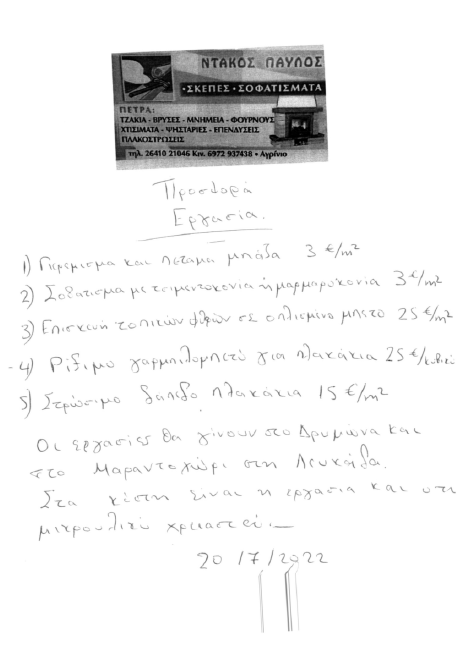 ΝΤΑΚΟΣ ΠΑΥΛΟΣ
• ΣΚΕΠΕΣ • ΣΟΦΑΤΙΣΜΑΤΑ
ΠΕΤΡΑ:
ΤΖΑΚΙΑ - ΒΡΥΣΕΣ - ΜΝΗΜΕΙΑ - ΦΟΥΡΝΟΥΣ
ΧΤΙΣΙΜΑΤΑ - ΨΗΣΤΑΡΙΕΣ - ΕΠΕΝΔΥΣΕΙΣ
ΠΛΑΚΟΣΤΡΩΣΕΙΣ
τηλ. 26410 21046 Κιν. 6972 937438 • Αγρίνιο
Προσφορά
Εργασία.
1) και πέταμα μπάζα 3 €/m²
2) Σοβατισμα με τσιμεντοκονία ή μαρμαροκονία 3 €/m²
3) Επισκευή τοπικών φθορών σε οπλισμένο μπετό 25 €/m²
4) Ρίξιμο γαρμπιλομπετό για πλακάκια 25 €/κυβικό
5) Στρώσιμο δαπεδο πλακάκια 15 €/m²
Οι εργασίες θα γίνουν στο Δρυμωνα και
στο Μαραντοχώρι στη Λευκάδα.
Στα είναι η εργασία και οτι
μικρουλικό χρειαστεί.
20/7/2022